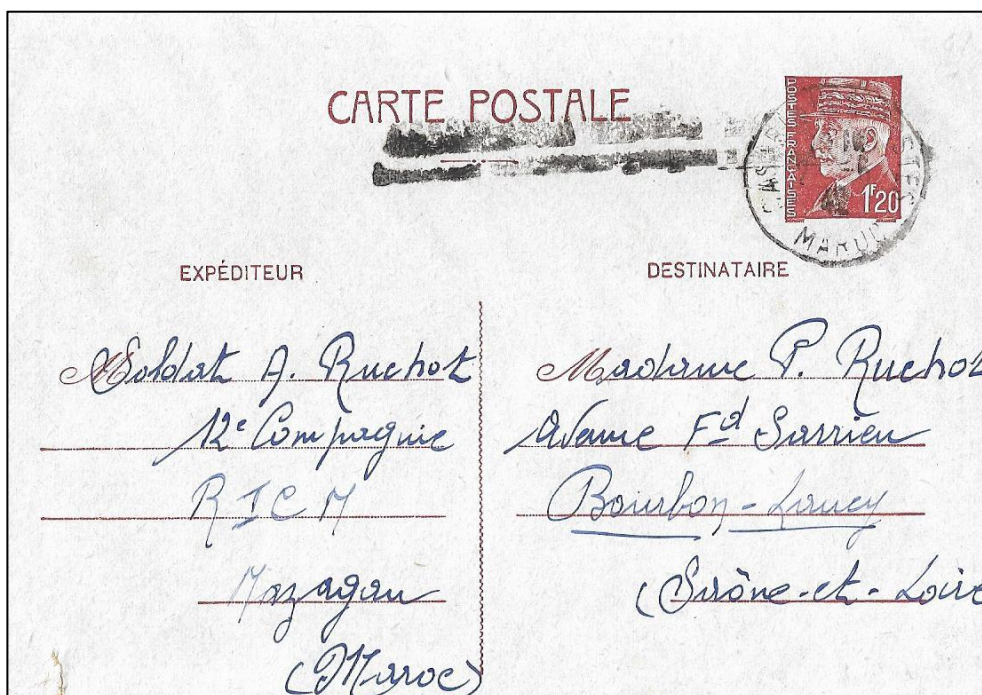 CARTE POSTALE
POSTES FRANÇAISES
1F20
MAROC
EXPÉDITEUR
Soldat A. Ruchot
12e Compagnie
R I C M
Mazagan
(Maroc)
DESTINATAIRE
Madame P. Ruchot
Avenue Fd Sarrien
Bourbon-Lancy
(Saône-et-Loire